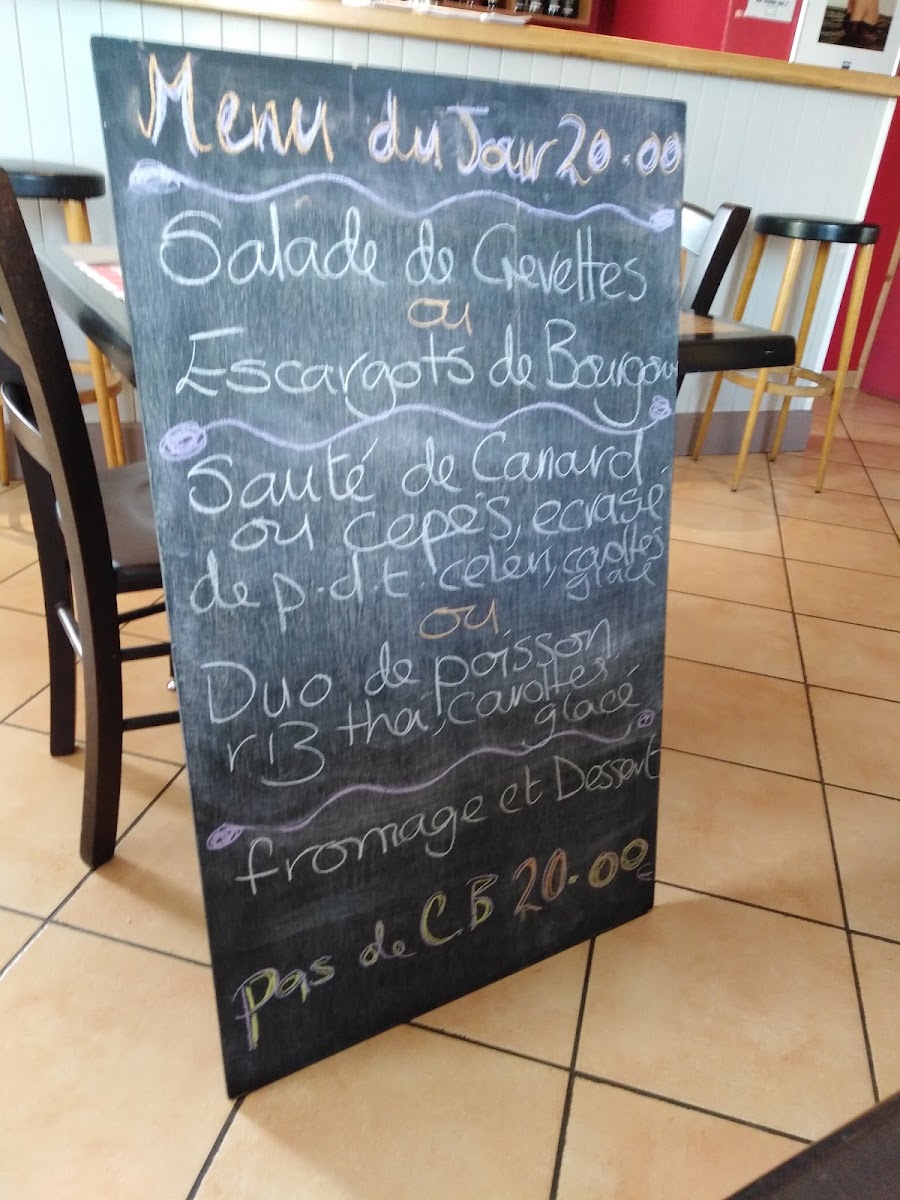 Menu du Jour 20.00
Salade de Crevettes
ou
Escargots de Bourgou
Sauté de Canard
ou cepes, ecrasé
de p.d.t. celeri, carottes
glacé
ou
Duo de poisson
riz thai, carottes
glacé
fromage et Dessert
Pas de C.B 20.00€